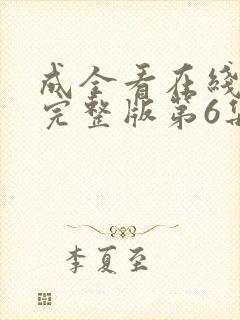 成全看在线
完整版第6集
李夏至